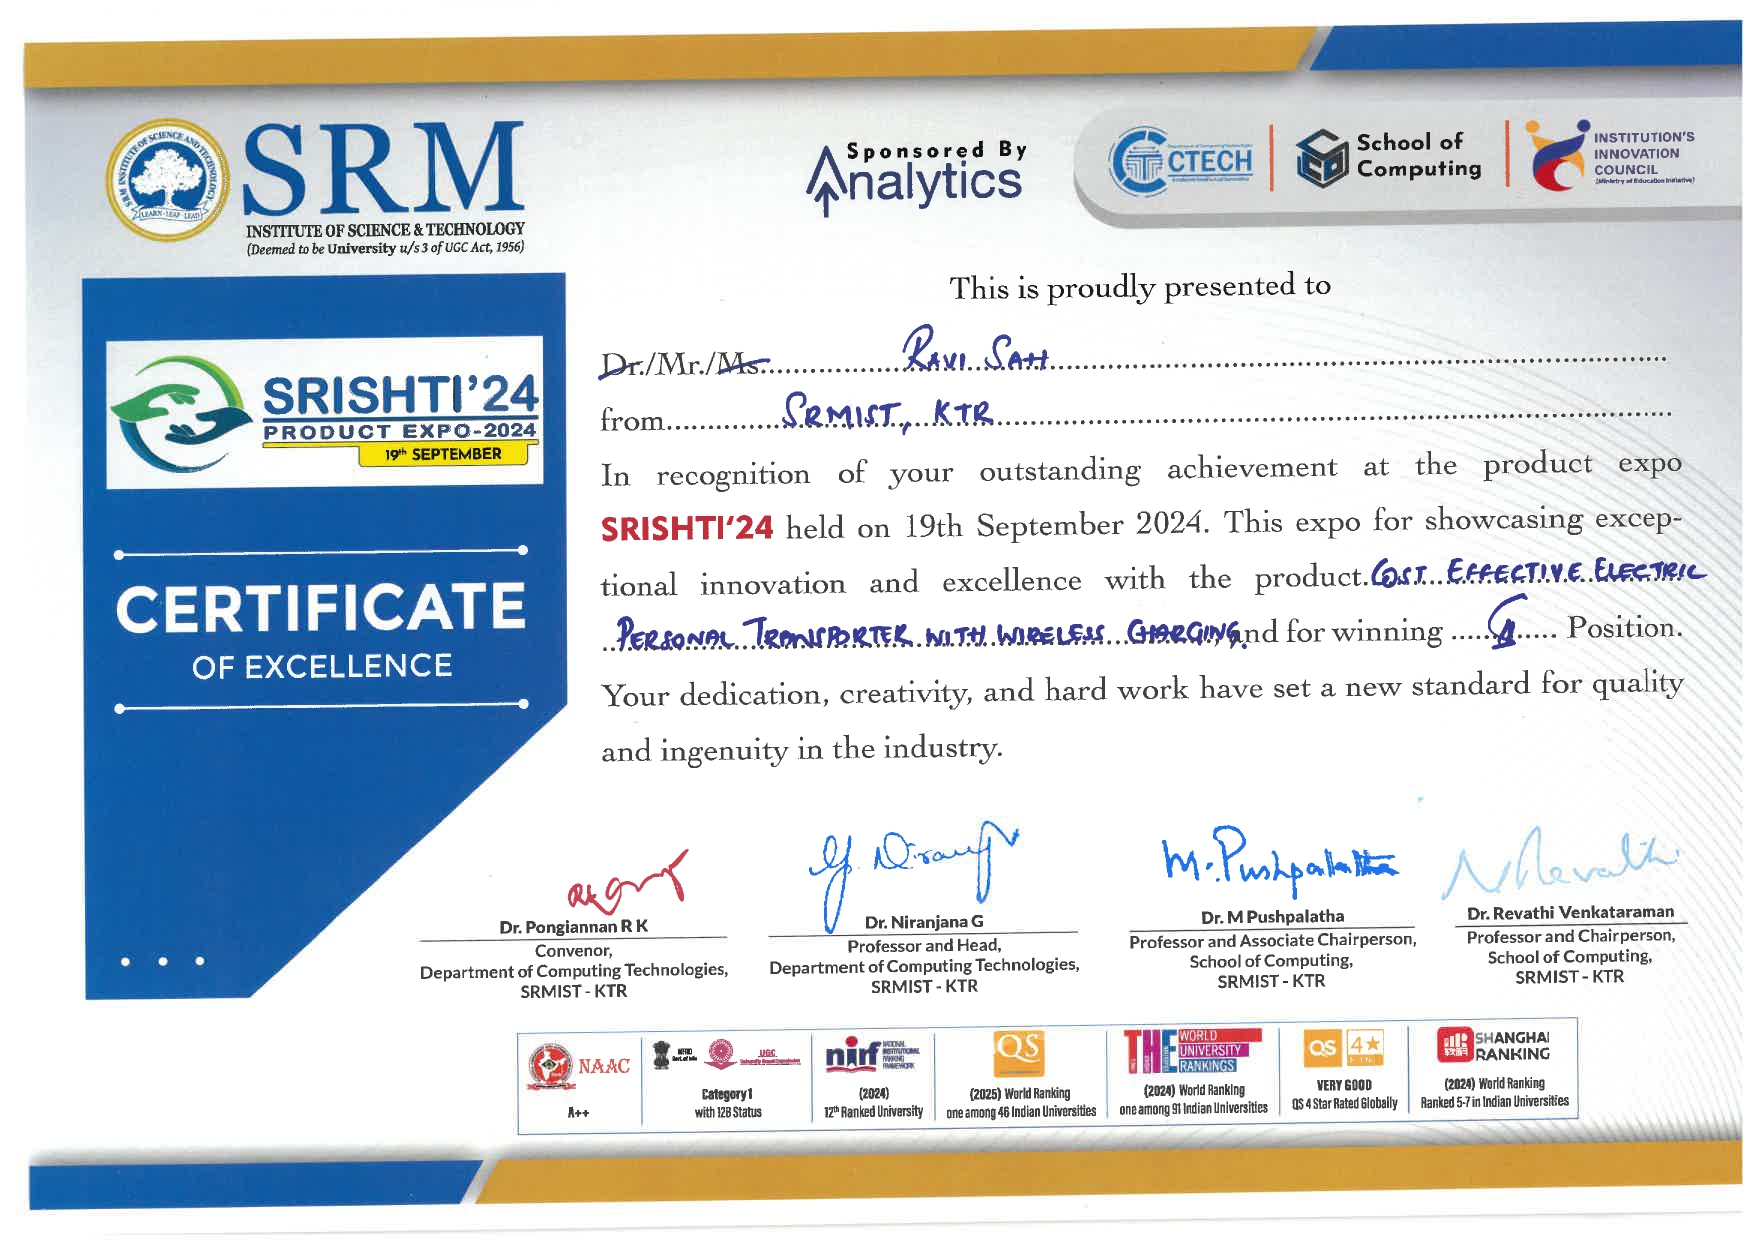 SRM
INSTITUTE OF SCIENCE & TECHNOLOGY
(Deemed to be University u/s 3 of UGC Act, 1956)
SRM INSTITUTE OF SCIENCE AND TECHNOLOGY
LEARN-LEAP-LEAD
Sponsored By
Analytics
CTECH
School of
Computing
INSTITUTION'S
INNOVATION
COUNCIL
(Ministry of Education Initiative)
SRISHTI'24
PRODUCT EXPO-2024
19th SEPTEMBER
CERTIFICATE
OF EXCELLENCE
This is proudly presented to
Dr./Mr./Ms. RAVI SAH
from SRMIST, KTR
In recognition of your outstanding achievement at the product expo
SRISHTI'24 held on 19th September 2024. This expo for showcasing excep-
tional innovation and excellence with the product. COST EFFECTIVE ELECTRIC
PERSONAL TRANSPORTER WITH WIRELESS CHARGING, and for winning ..... Position.
Your dedication, creativity, and hard work have set a new standard for quality
and ingenuity in the industry.
G. Niranj
M. Pushpalatha
N Revathi
Dr. Pongiannan R K
Convenor,
Department of Computing Technologies,
SRMIST - KTR
Dr. Niranjana G
Professor and Head,
Department of Computing Technologies,
SRMIST - KTR
Dr. M Pushpalatha
Professor and Associate Chairperson,
School of Computing,
SRMIST - KTR
Dr. Revathi Venkataraman
Professor and Chairperson,
School of Computing,
SRMIST - KTR
NAAC
A++
UGC
Category 1
with 12B Status
nirf
NATIONAL
INSTITUTIONAL
RANKING
FRAMEWORK
(2024)
12th Ranked University
QS
(2025) World Ranking
one among 46 Indian Universities
THE
WORLD
UNIVERSITY
RANKINGS
(2024) World Ranking
one among 91 Indian Universities
QS 4★
VERY GOOD
QS 4 Star Rated Globally
SHANGHAI
RANKING
(2024) World Ranking
Ranked 5-7 in Indian Universities